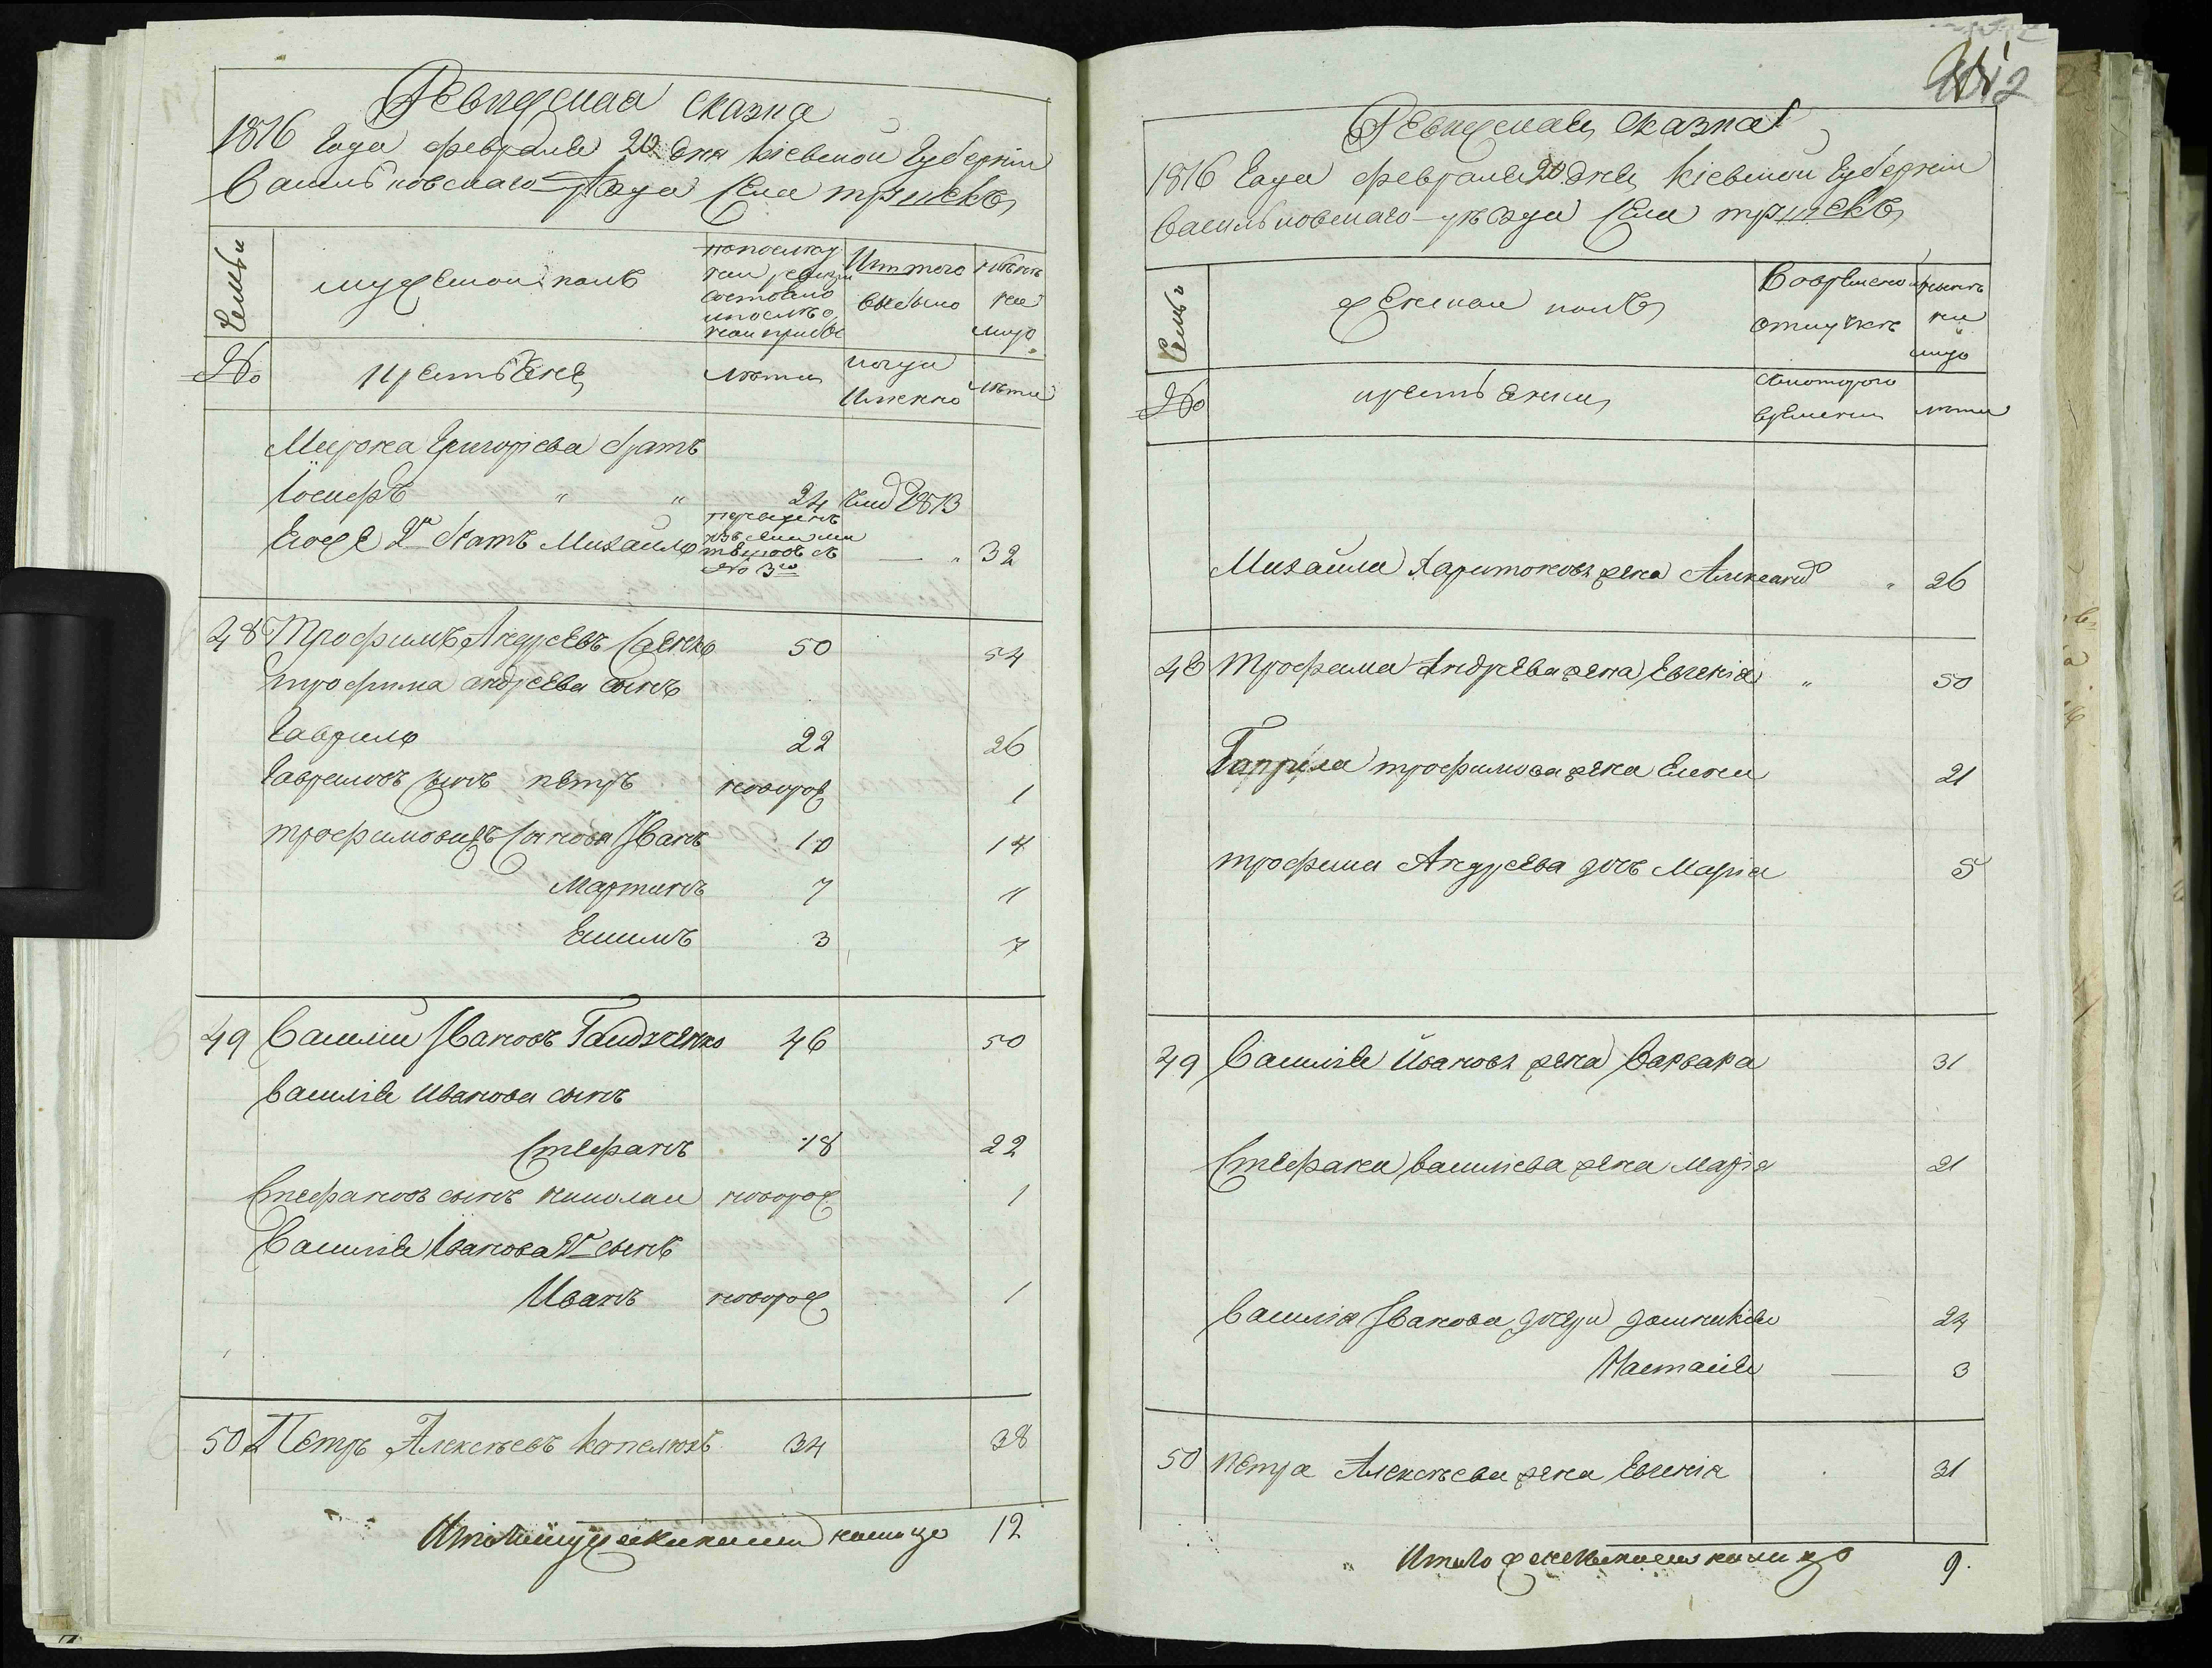 Ревижская сказка
1816 Года февраля 20 дня Кіевской Губерніи
Васильковскаго уѣзда Села
Семьи
мужеской полъ
по последней ревизіи состояло и после оной прибы
Изъ того выбыло
ныне на лицо
№
крестьяне
лѣта
когда Именно
лѣта
Мирона Григоріева братъ
Іосифъ " " 24 1813
Егоже 2й братъ Михайло 32
48 Трофимъ Андреевъ Саенко 50 54
трофима андреева сынъ
Гаврило 22 26
Гавриловъ сынъ петръ новорож 1
трофимовы Сынова Иванъ 10 14
Мартинъ 7 "
Екимъ 3 7
49 Василій Ивановъ 46 50
Василія Иванова сынъ
Стефанъ 18 22
Стефановъ сынъ николай новорож 1
Василія Иванова 2й сынъ
Иванъ новорож 1
50 Петръ Алексѣевъ Капелюхъ 34 38
Итого мужеска на лицо 12
2
Ревижская Сказка
1816 Года февраля 20 дня Кіевской Губерніи
Васильковскаго уѣзда Села
Семьи
женской полъ
Во временной отлучкѣ
ныне на лицо
№
крестьянки
Скотораго времени
лѣта
Михайла Харитонова жена Александ " 26
48 Трофима Андрѣева жена Евгенія " 50
Гаврила трофимова жена Елена 21
трофима Андреева дочь Марія 5
49 Василія Иванова жена Варвара 31
Стефана Василіева жена Марія 21
Василія Иванова дочери 24
Настасія 3
50 петра Алексѣева жена Евгенія 31
Итого женска на лицо 9.